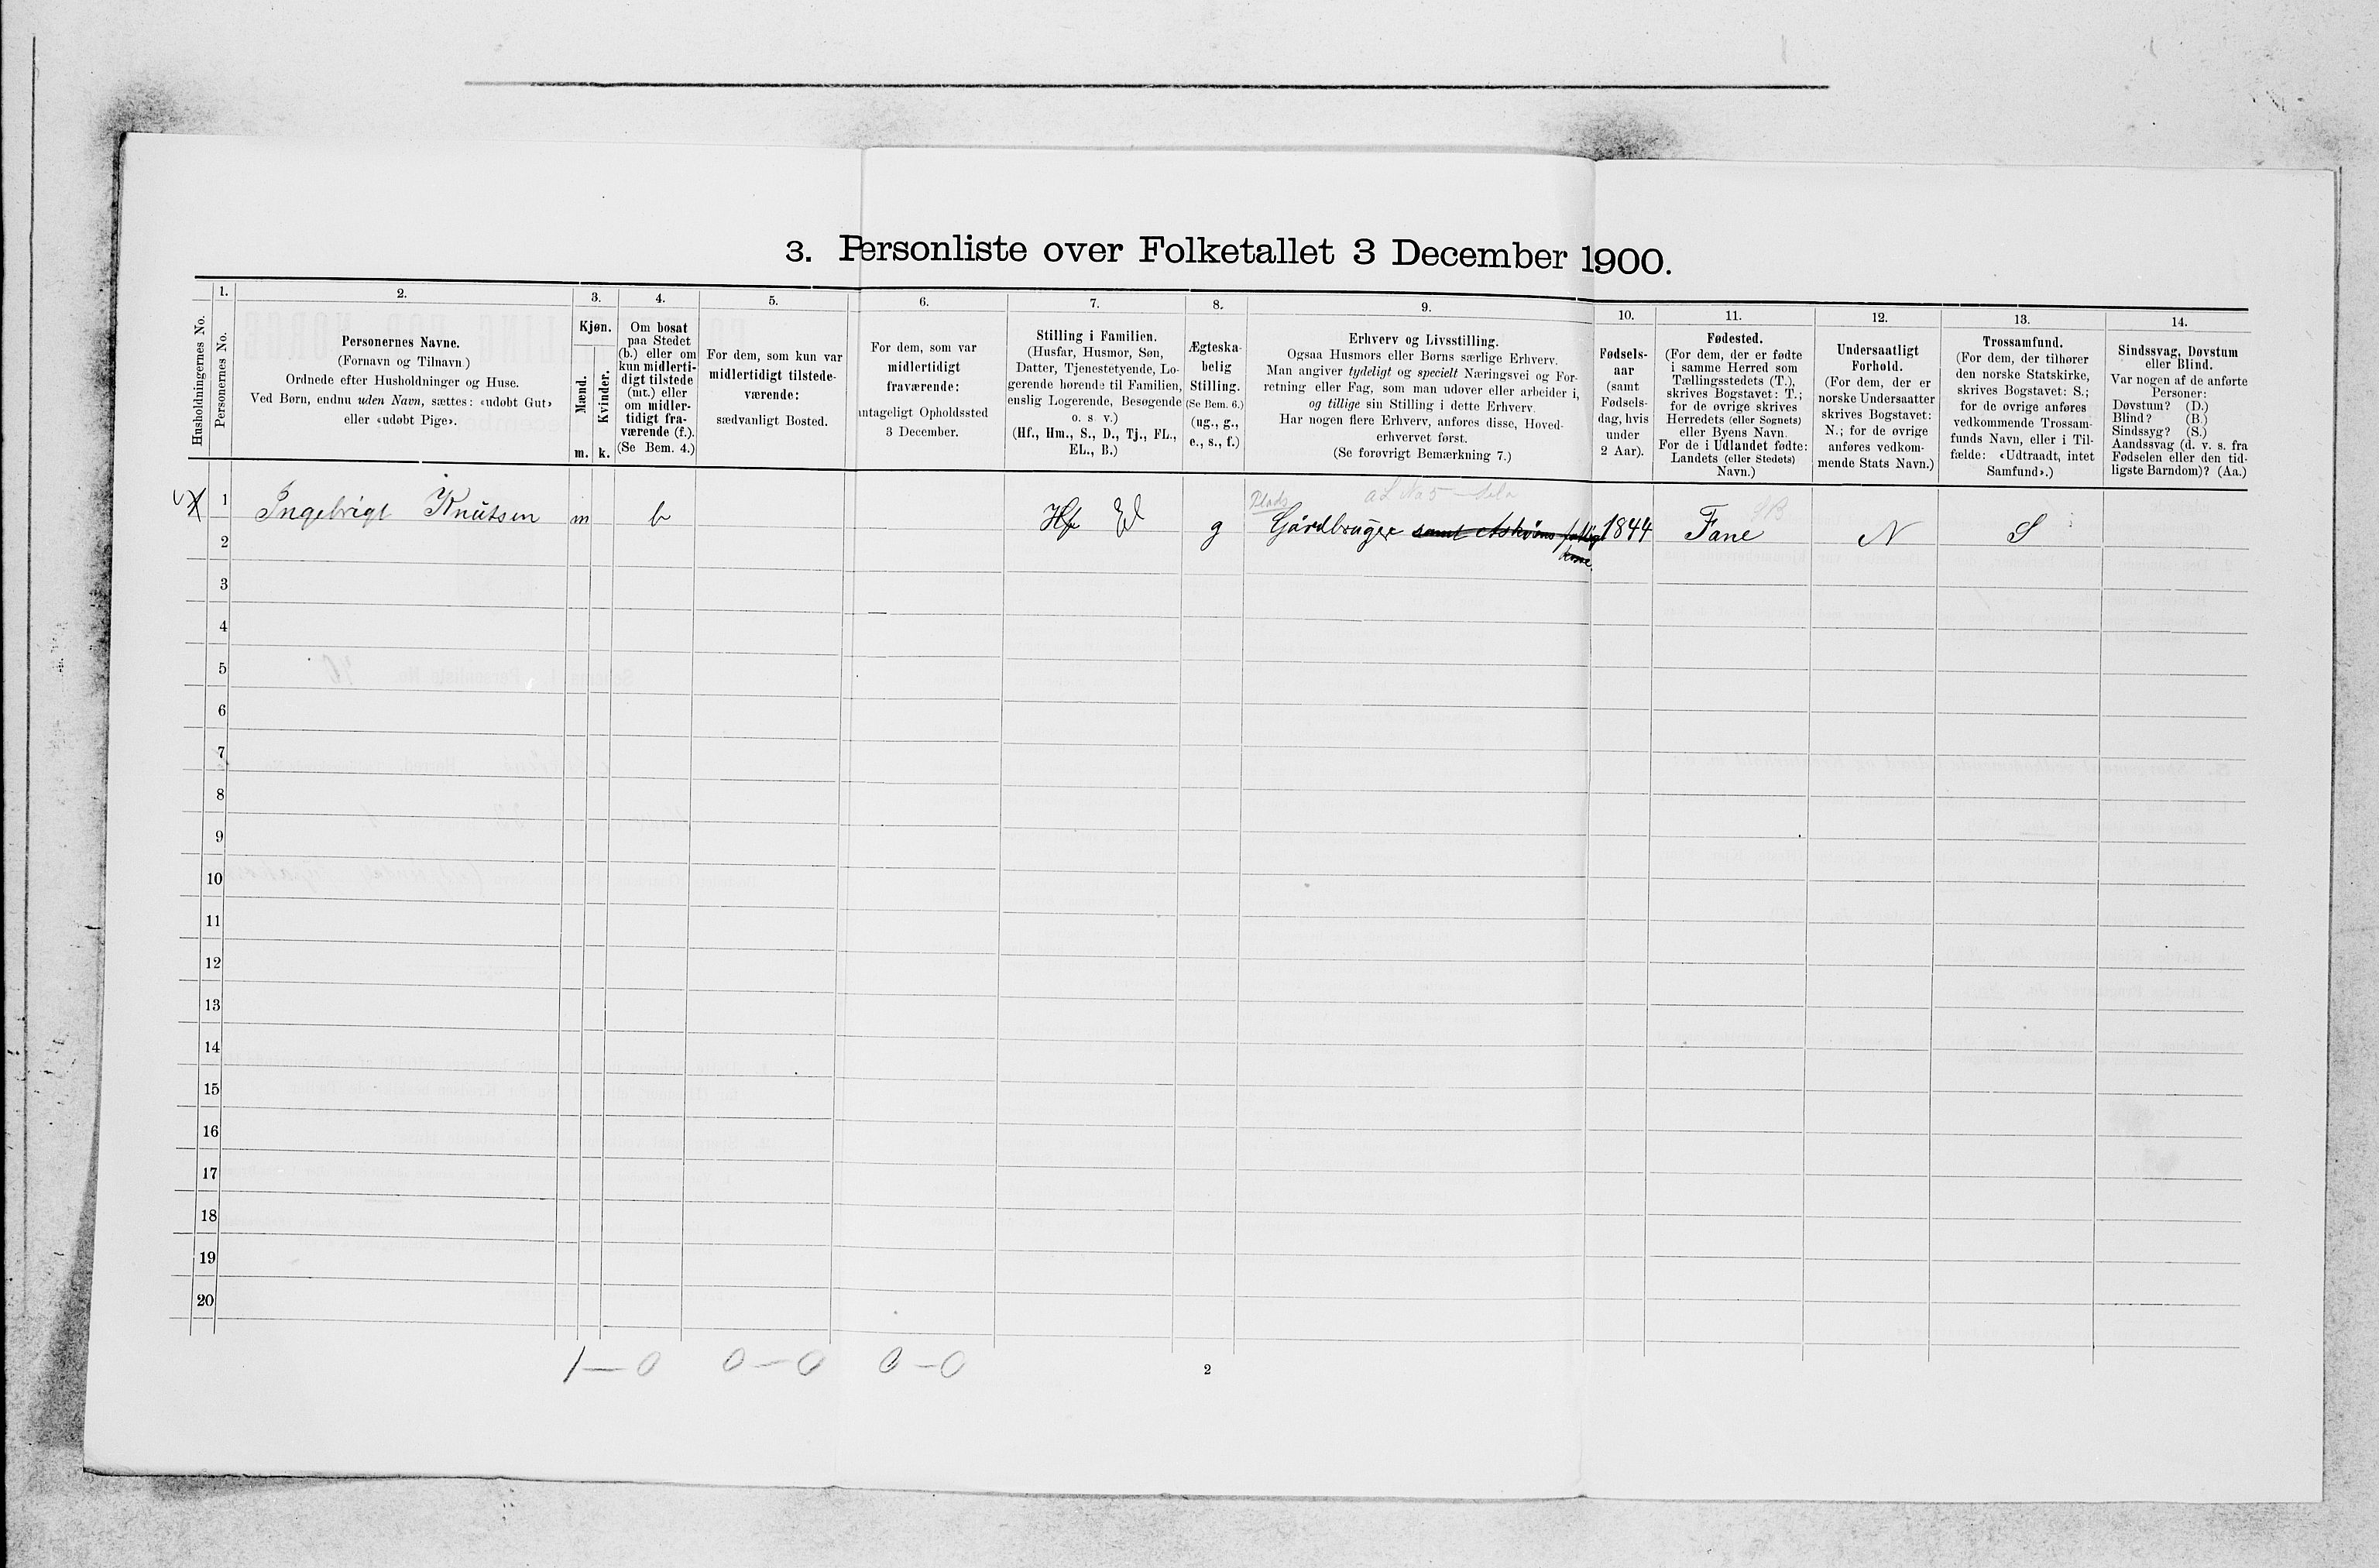 3. Personliste over Folketallet 3 December 1900.
Husholdningernes No.
1.
Personernes No.
2.
Personernes Navne.
(Fornavn og Tilnavn.)
Ordnede efter Husholdninger og Huse.
Ved Børn, endnu uden Navn, sættes: «udøbt Gut»
eller «udøbt Pige».
3.
Kjøn.
Mænd.
Kvinder.
m. k.
4.
Om bosat
paa Stedet
(b.) eller om
kun midlerti-
digt tilstede
(mt.) eller
om midler-
tidigt fra-
værende (f.).
(Se Bem. 4.)
5.
For dem, som kun var
midlertidigt tilstede-
værende:
sædvanligt Bosted.
6.
For dem, som var
midlertidigt
fraværende:
antageligt Opholdssted
3 December.
7.
Stilling i Familien.
(Husfar, Husmor, Søn,
Datter, Tjenestetyende, Lo-
gerende hørende til Familien,
enslig Logerende, Besøgende
o. s. v.)
(Hf., Hm., S., D., Tj., FL.,
EL., B.)
8.
Ægteska-
belig
Stilling.
(Se Bem. 6.)
(ug., g.,
e., s., f.)
9.
Erhverv og Livsstilling.
Ogsaa Husmors eller Børns særlige Erhverv.
Man angiver tydeligt og specielt Næringsvei og For-
retning eller Fag, som man udøver eller arbeider i,
og tillige sin Stilling i dette Erhverv.
Har nogen flere Erhverv, anføres disse, Hoved-
erhvervet først.
(Se forøvrigt Bemærkning 7.)
10.
Fødsels-
aar
(samt
Fødsels-
dag, hvis
under
2 Aar).
11.
Fødested.
(For dem, der er fødte
i samme Herred som
Tællingsstedets (T.),
skrives Bogstavet: T.;
for de øvrige skrives
Herredets (eller Sognets)
eller Byens Navn.
For de i Udlandet fødte:
Landets (eller Stedets)
Navn.)
12.
Undersaatligt
Forhold.
(For dem, der er
norske Undersaatter
skrives Bogstavet:
N.; for de øvrige
anføres vedkom-
mende Stats Navn.)
13.
Trossamfund.
(For dem, der tilhører
den norske Statskirke,
skrives Bogstavet: S.;
for de øvrige anføres
vedkommende Trossam-
funds Navn, eller i Til-
fælde: «Udtraadt, intet
Samfund».)
14.
Sindssvag, Døvstum
eller Blind.
Var nogen af de anførte
Personer:
Døvstum? (D.)
Blind? (B.)
Sindssyg? (S.)
Aandssvag (d. v. s. fra
Fødselen eller den tid-
ligste Barndom)? (Aa.)
Plads
1 Ingebrigt Knutsen m b Hf El g Gårdbruger samt Askøens 1844 Fane N S
2
3
4
5
6
7
8
9
10
11
12
13
14
15
16
17
18
19
20
1—0 0—0 0—0
2